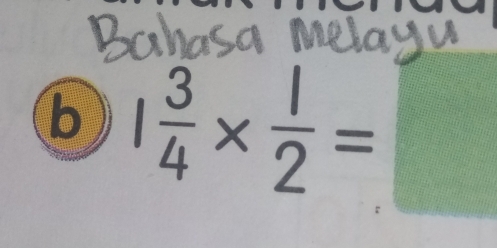 Bahasa Melayu
b 1 3/4 × 1/2 =